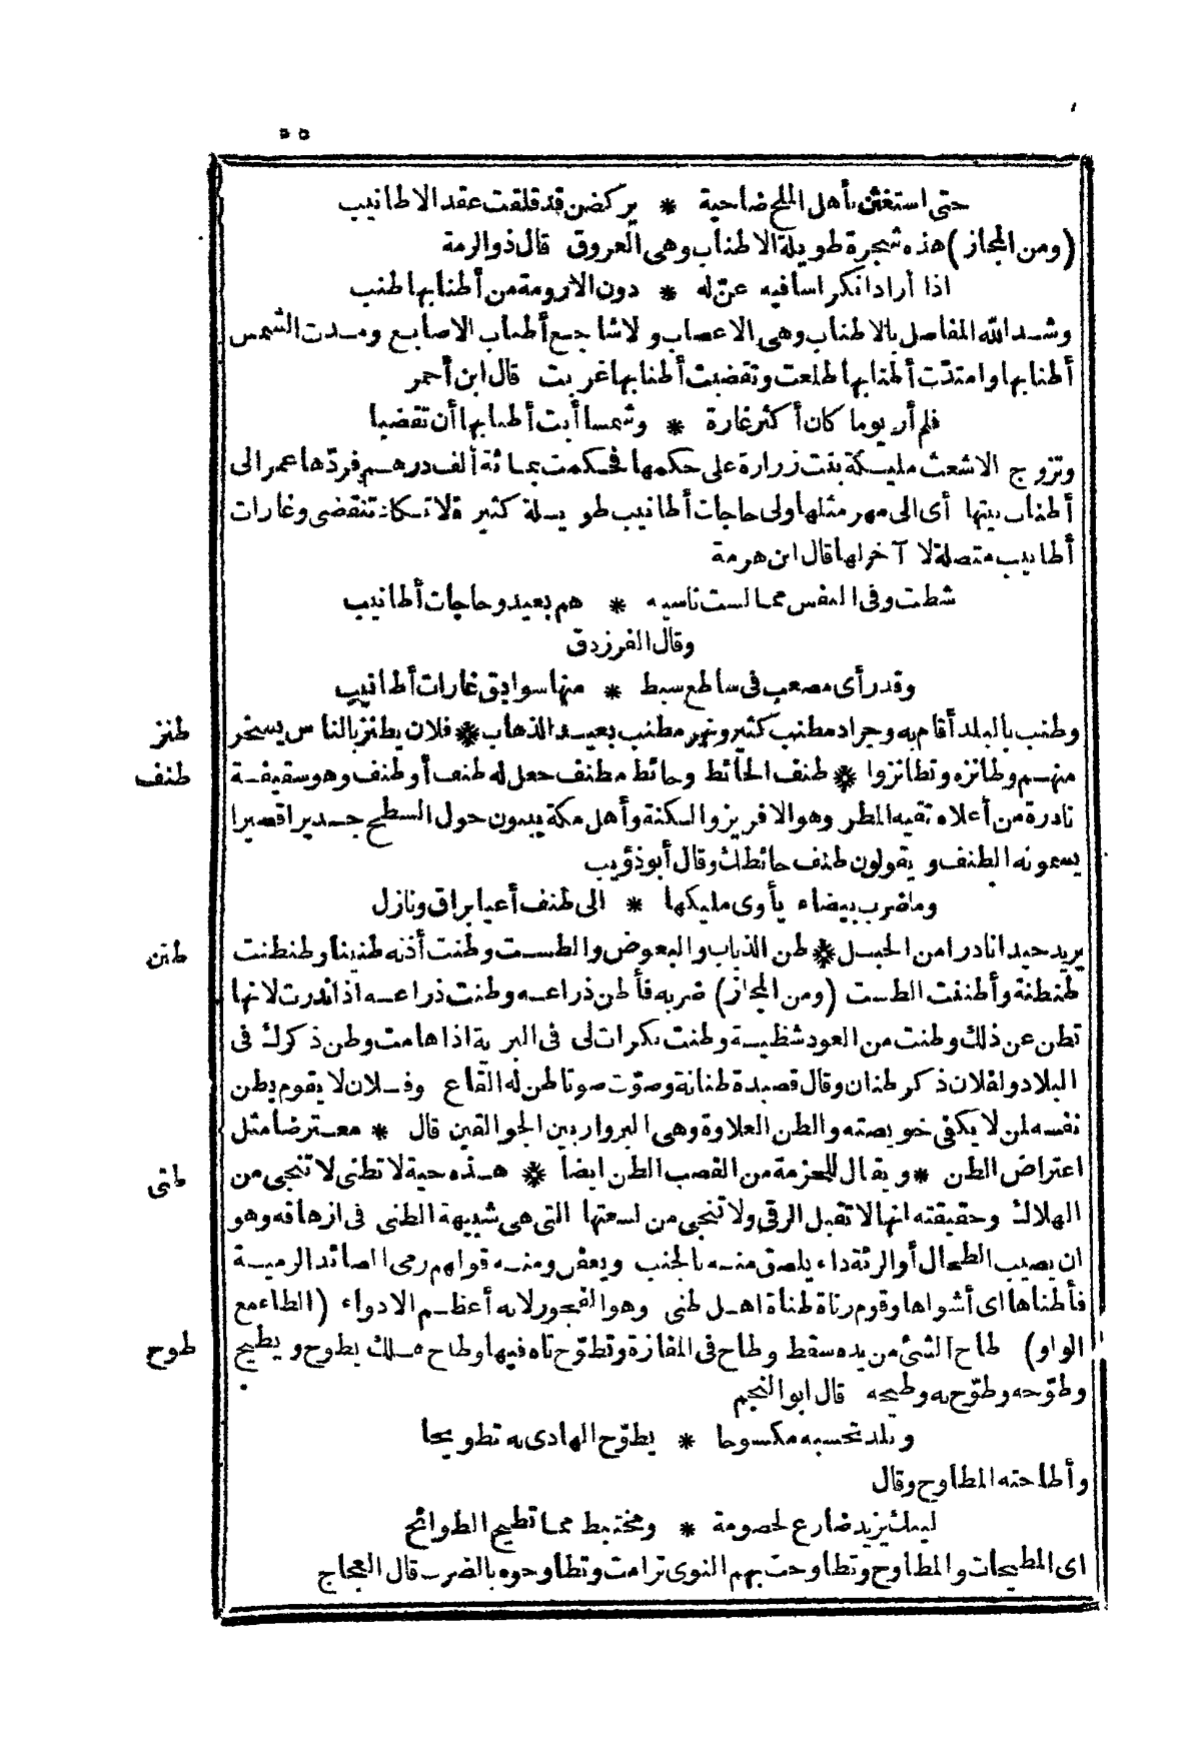 ٥٥
حتى استغثن بأهل الملح ضاحية * يركضن قد قلقت عقد الاطانيب
(ومن المجاز) هذه شجرة طويلة الاطناب وهى العروق قال ذوالرمة
اذا أراد انكراسا فيه عنّ له * دون الارومة من أطنابها طنب
وشد الله المفاصل بالاطناب وهى الاعصاب ولاشاجع أطناب الاصابع ومدت الشمس
أطنابها وامتدّت أطنابها طلعت وتقضبت أطنابها غربت قال ابن أحمر
فلم أر يوما كان أكثر غارة * وشمسا أبت أطنابها أن تقضبا
وتزوج الاشعث مليكة بنت زرارة على حكمها فحكمت بمائة ألف درهم فردّها عمر الى
أطناب بيتها أى الى مهر مثلها ولى حاجات أطانيب طويلة كثيرة لاتكاد تنقضى وغارات
أطانيب متصلة لا آخرلها قال ابن هرمة
شطت وفى النفس مما لست ناسيه * هم بعيد وحاجات أطانيب
وقال الفرزدق
وقد رأى مصعب فى ساطع سبط * منها سوابق غارات أطانيب
وطنب بالبلد أقام به وجراد مطنب كثير ونهر مطنب بعيد الذهاب * فلان يطنز بالناس يسخر
طنز
منهم وطانزه وتطانزوا * طنف الحائط وحائط مطنف جعل له طنف أو طنف وهو سقيفة
طنف
نادرة من أعلاه تقيه المطر وهو الافريز والكنة وأهل مكة يبنون حول السطح جديرا قصيرا
يسمونه الطنف ويقولون طنف حائطك وقال أبوذؤيب
وما ضرب بيضاء يأوى مليكها * الى طنف أعيا براق ونازل
يريد حيدا نادرا من الجبل * طن الذباب والبعوض والطست وطنت أذنه طنينا وطنطنت
طنن
طنطنة وأطننت الطست (ومن المجاز) ضربه فأطن ذراعه وطنت ذراعه اذا ندرت لانها
تطن عن ذلك وطنت من العود شظية وطنت بكرات لى فى البرية اذا هامت وطن ذكرك فى
البلاد ولفلان ذكر طنان وقال قصيدة طنانة وصوّت صوتا طن له القاع وفلان لا يقوم بطن
نفسه لمن لا يكفى خويصته والطن العلاوة وهى البروار بين الجوالقين قال * معترضا مثل
اعتراض الطن * ويقال للحزمة من القصب الطن ايضا * هذه حية لا تطنى لا تنجى من
طنى
الهلاك وحقيقته انها لا تقبل الرقى ولا تنجى من لسعتها التى هى شبيهة الطنى فى ازهاقه وهو
ان يصيب الطحال أو الرئة داء يلصق منه بالجنب ويعفن ومنه قولهم رمى الصائد الرمية
فأطناها اى أشواها وقوم زناة طناة اهل طنى وهو الفجور لانه أعظم الادواء (الطاء مع
الواو) طاح الشئ من يده سقط وطاح فى المفازة وتطوّح تاه فيها وطاح هلك يطوح ويطيح
طوح
وطوّحه وطوّح به وطيحه قال ابوالنجم
وبلد تحسبه مكسوحا * يطوّح الهادى به تطويحا
وأطاحته المطاوح وقال
ليبك يزيد ضارع لخصومة * ومختبط مما تطيح الطوائح
اى المطيحات والمطاوح وتطاوحت بهم النوى ترامت وتطاوحوه بالضرب قال العجاج